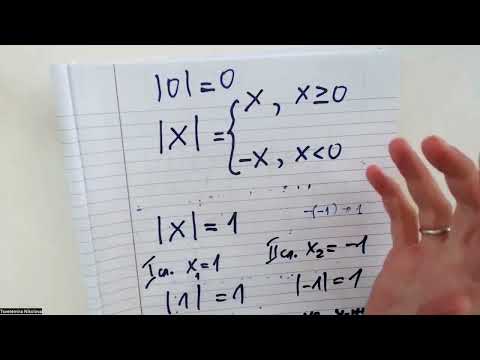 |0| = 0
|x| = { x, x ≥ 0
-x, x < 0
|x| = 1
-(-1) = 1
I сл. x₁ = 1
II сл. x₂ = -1
|1| = 1
|-1| = 1
Tsvetelina Nikolova